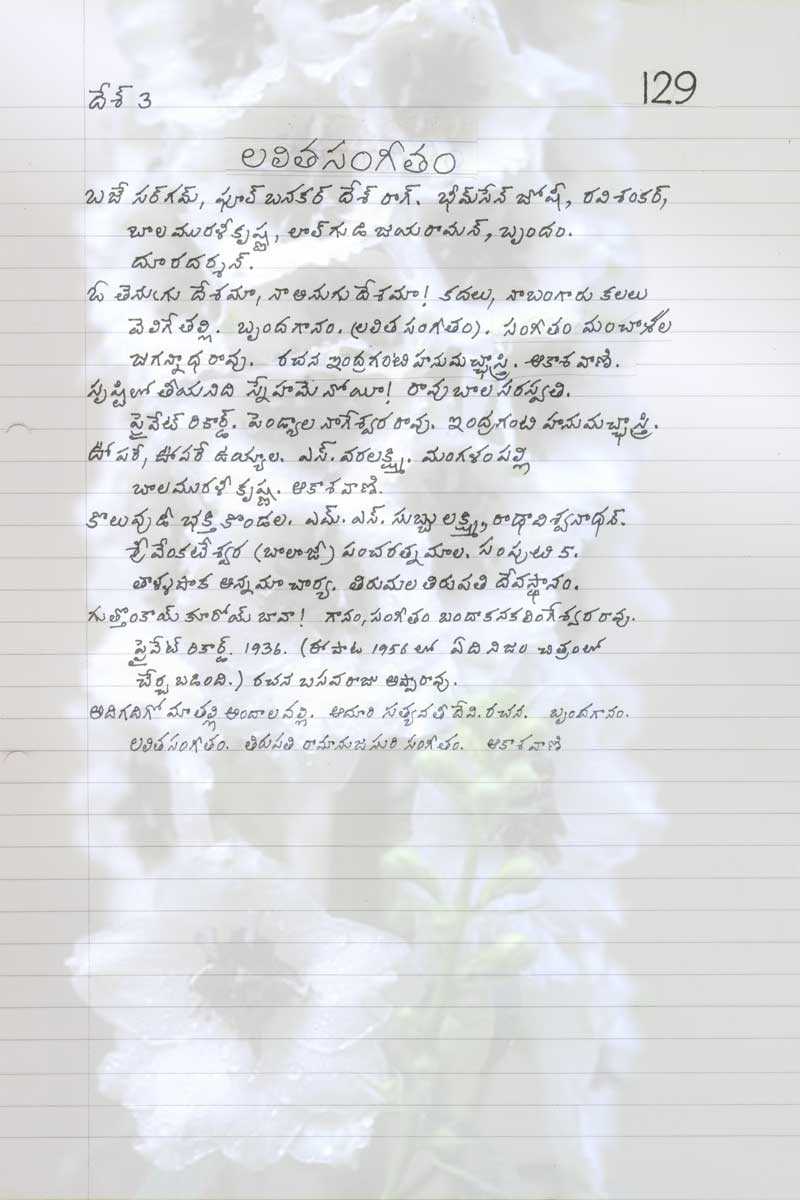 దేశ్ 3
129
లలితసంగీతం
బజే సర్‌గమ్, ఫూల్ బనకర్ దేశ్ రాగ్. భీమ్‌సేన్ జోషీ, రవిశంకర్,
బాలమురళీకృష్ణ, లాల్‌గుడి జయరామన్, బృందం.
దూరదర్శన్.
ఓ తెనుఁగు దేశమా, నా అనుగు దేశమా! కదలు, నా బంగారు కలలు
వెలిగే తల్లి. బృందగానం. (లలిత సంగీతం). సంగీతం మంచాళ
జగన్నాధ రావు. రచన ఇంద్రగంటి హనుమచ్ఛాస్త్రి. ఆకాశవాణి.
సృష్టిలో తీయనిది స్నేహమేనోయీ! రావు బాల సరస్వతి.
ప్రైవేట్ రికార్డ్. పెండ్యాల నాగేశ్వర రావు. ఇంద్రగంటి హనుమచ్ఛాస్త్రి.
ఊపరే, ఊపరే ఉయ్యాల. ఎస్. వరలక్ష్మి. మంగళంపల్లి
బాలమురళీ కృష్ణ. ఆకాశవాణి.
కొలువుడీ భక్తి కొండల. ఎమ్. ఎస్. సుబ్బులక్ష్మి, రాధావిశ్వనాథన్.
శ్రీ వేంకటేశ్వర (బాలాజీ) పంచరత్నమాల. సంపుటి
తాళ్ళపాక అన్నమాచార్య. తిరుమల తిరుపతి దేవస్థానం.
గుత్తొంకాయ్ కూరోయ్ బావా! గానం, సంగీతం బందా కనకలింగేశ్వర రావు.
ప్రైవేట్ రికార్డ్. 1936. (ఈ పాట 1956 లో ఏది నిజం చిత్రంలో
చేర్చబడింది.) రచన బసవరాజు అప్పారావు.
అదిగదిగో మా తల్లి అందాలవల్లి. ఆదూరి సత్యవతీ దేవి. రచన. బృందగానం.
లలితసంగీతం. తిరుపతి రామానుజ సూరి సంగీతం. ఆకాశవాణి